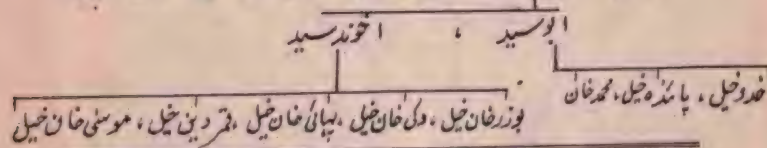 ابوسید ، اخوندسید
خدوخیل ، پائندہ خیل، محمدخان
بوزرخان خیل ، وکی خان خیل ،پہائی خان خیل ،قمر دین خیل ، موسیٰ خان خیل